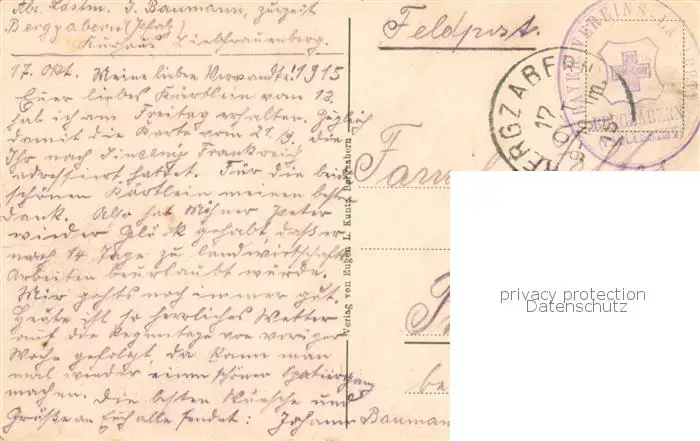 Abs. Ldstm. J. Baumann, zurzeit
Bergzabern (Pfalz)
Kurhaus Liebfrauenberg.
17. Okt. Meine lieben Verwandte! 1915
Euer liebes Kärtlein vom 13.
hab ich am Freitag erhalten.
damit die Karte vom 21./9. die
Ihr nach Frankreich
adressiert hattet. Für die
schönen Kärtlein meinen besten
dank. Also hat Peter
wieder Glück gehabt, daß er
noch 14 Tage zu landwirtschaft
Arbeiten beurlaubt wurde.
Mir gehts noch immer gut.
Heute ist so herrliches Wetter
auf die Regentage von voriger
Woche gefolgt, da kann man
mal wieder einen schönen Spatziergang
machen. Die besten Wünsche und
Grüße an Euch alle sendet: Johann Baumann
Verlag von Eugen L. Kuntz, Bergzabern
Feldpost.
BERGZABERN
17 OKT
15
BERGZABERN
Fam
be
privacy protection
Datenschutz